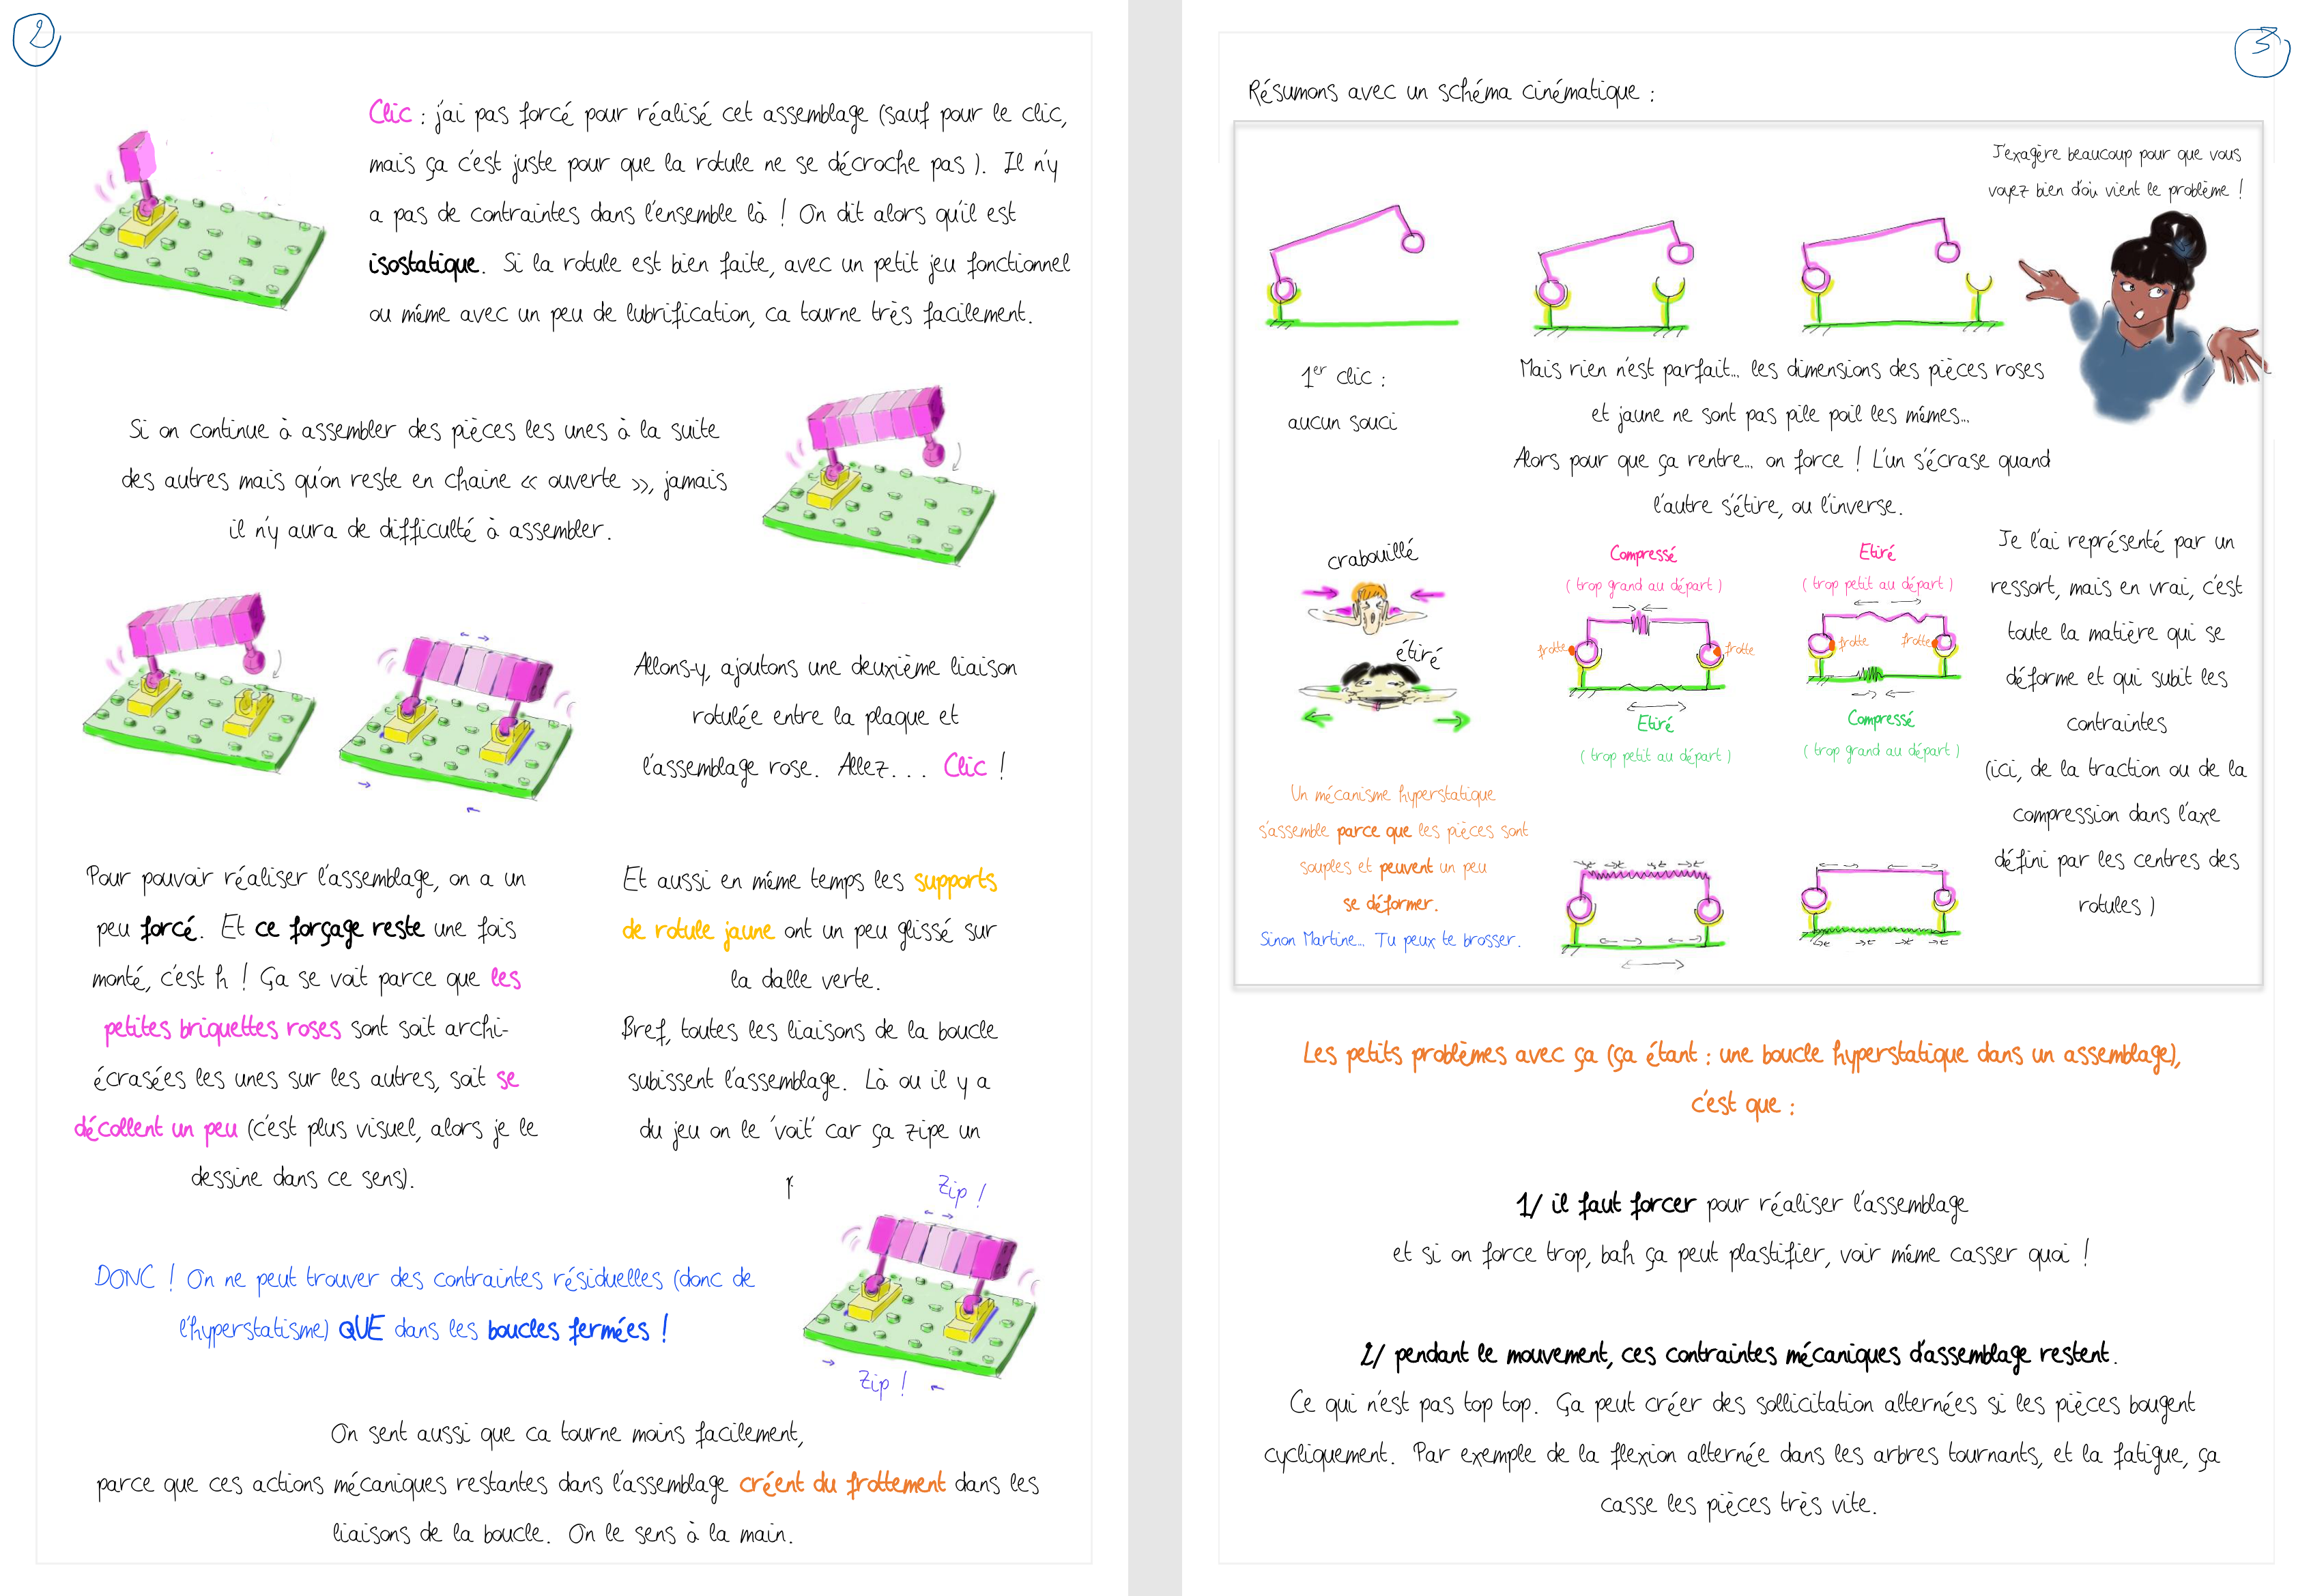 2
Clic : j'ai pas forcé pour réalisé cet assemblage (sauf pour le clic,
mais ça c'est juste pour que la rotule ne se décroche pas ). Il n'y
a pas de contraintes dans l'ensemble là ! On dit alors qu'il est
isostatique. Si la rotule est bien faite, avec un petit jeu fonctionnel
ou même avec un peu de lubrification, ca tourne très facilement.
Si on continue à assembler des pièces les unes à la suite
des autres mais qu'on reste en chaine « ouverte », jamais
il n'y aura de difficulté à assembler.
Allons-y, ajoutons une deuxième liaison
rotulée entre la plaque et
l'assemblage rose. Allez... Clic !
Pour pouvoir réaliser l'assemblage, on a un
peu forcé. Et ce forçage reste une fois
monté, c'est h ! Ça se voit parce que les
petites briquettes roses sont soit archi-
écrasées les unes sur les autres, soit se
décollent un peu (c'est plus visuel, alors je le
dessine dans ce sens).
Et aussi en même temps les supports
de rotule jaune ont un peu glissé sur
la dalle verte.
Bref, toutes les liaisons de la boucle
subissent l'assemblage. Là ou il y a
du jeu on le 'voit' car ça zipe un
Zip !
Zip !
DONC ! On ne peut trouver des contraintes résiduelles (donc de
l'hyperstatisme) QUE dans les boucles fermées !
On sent aussi que ca tourne moins facilement,
parce que ces actions mécaniques restantes dans l'assemblage créent du frottement dans les
liaisons de la boucle. On le sens à la main.
3
Résumons avec un schéma cinématique :
J'exagère beaucoup pour que vous
voyez bien d'où vient le problème !
1er clic :
aucun souci
Mais rien n'est parfait... les dimensions des pièces roses
et jaune ne sont pas pile poil les mêmes...
Alors pour que ça rentre... on force ! L'un s'écrase quand
l'autre s'étire, ou l'inverse.
crabouillé
étiré
Compressé
( trop grand au départ )
frotte
frotte
Etiré
( trop petit au départ )
Etiré
( trop petit au départ )
frotte
frotte
Compressé
( trop grand au départ )
Je l'ai représenté par un
ressort, mais en vrai, c'est
toute la matière qui se
déforme et qui subit les
contraintes
(ici, de la traction ou de la
compression dans l'axe
défini par les centres des
rotules )
Un mécanisme hyperstatique
s'assemble parce que les pièces sont
souples et peuvent un peu
se déformer.
Sinon Martine... Tu peux te brosser.
Les petits problèmes avec ça (ça étant : une boucle hyperstatique dans un assemblage),
c'est que :
1/ il faut forcer pour réaliser l'assemblage
et si on force trop, bah ça peut plastifier, voir même casser quoi !
2/ pendant le mouvement, ces contraintes mécaniques d'assemblage restent.
Ce qui n'est pas top top. Ça peut créer des sollicitation alternées si les pièces bougent
cycliquement. Par exemple de la flexion alternée dans les arbres tournants, et la fatigue, ça
casse les pièces très vite.